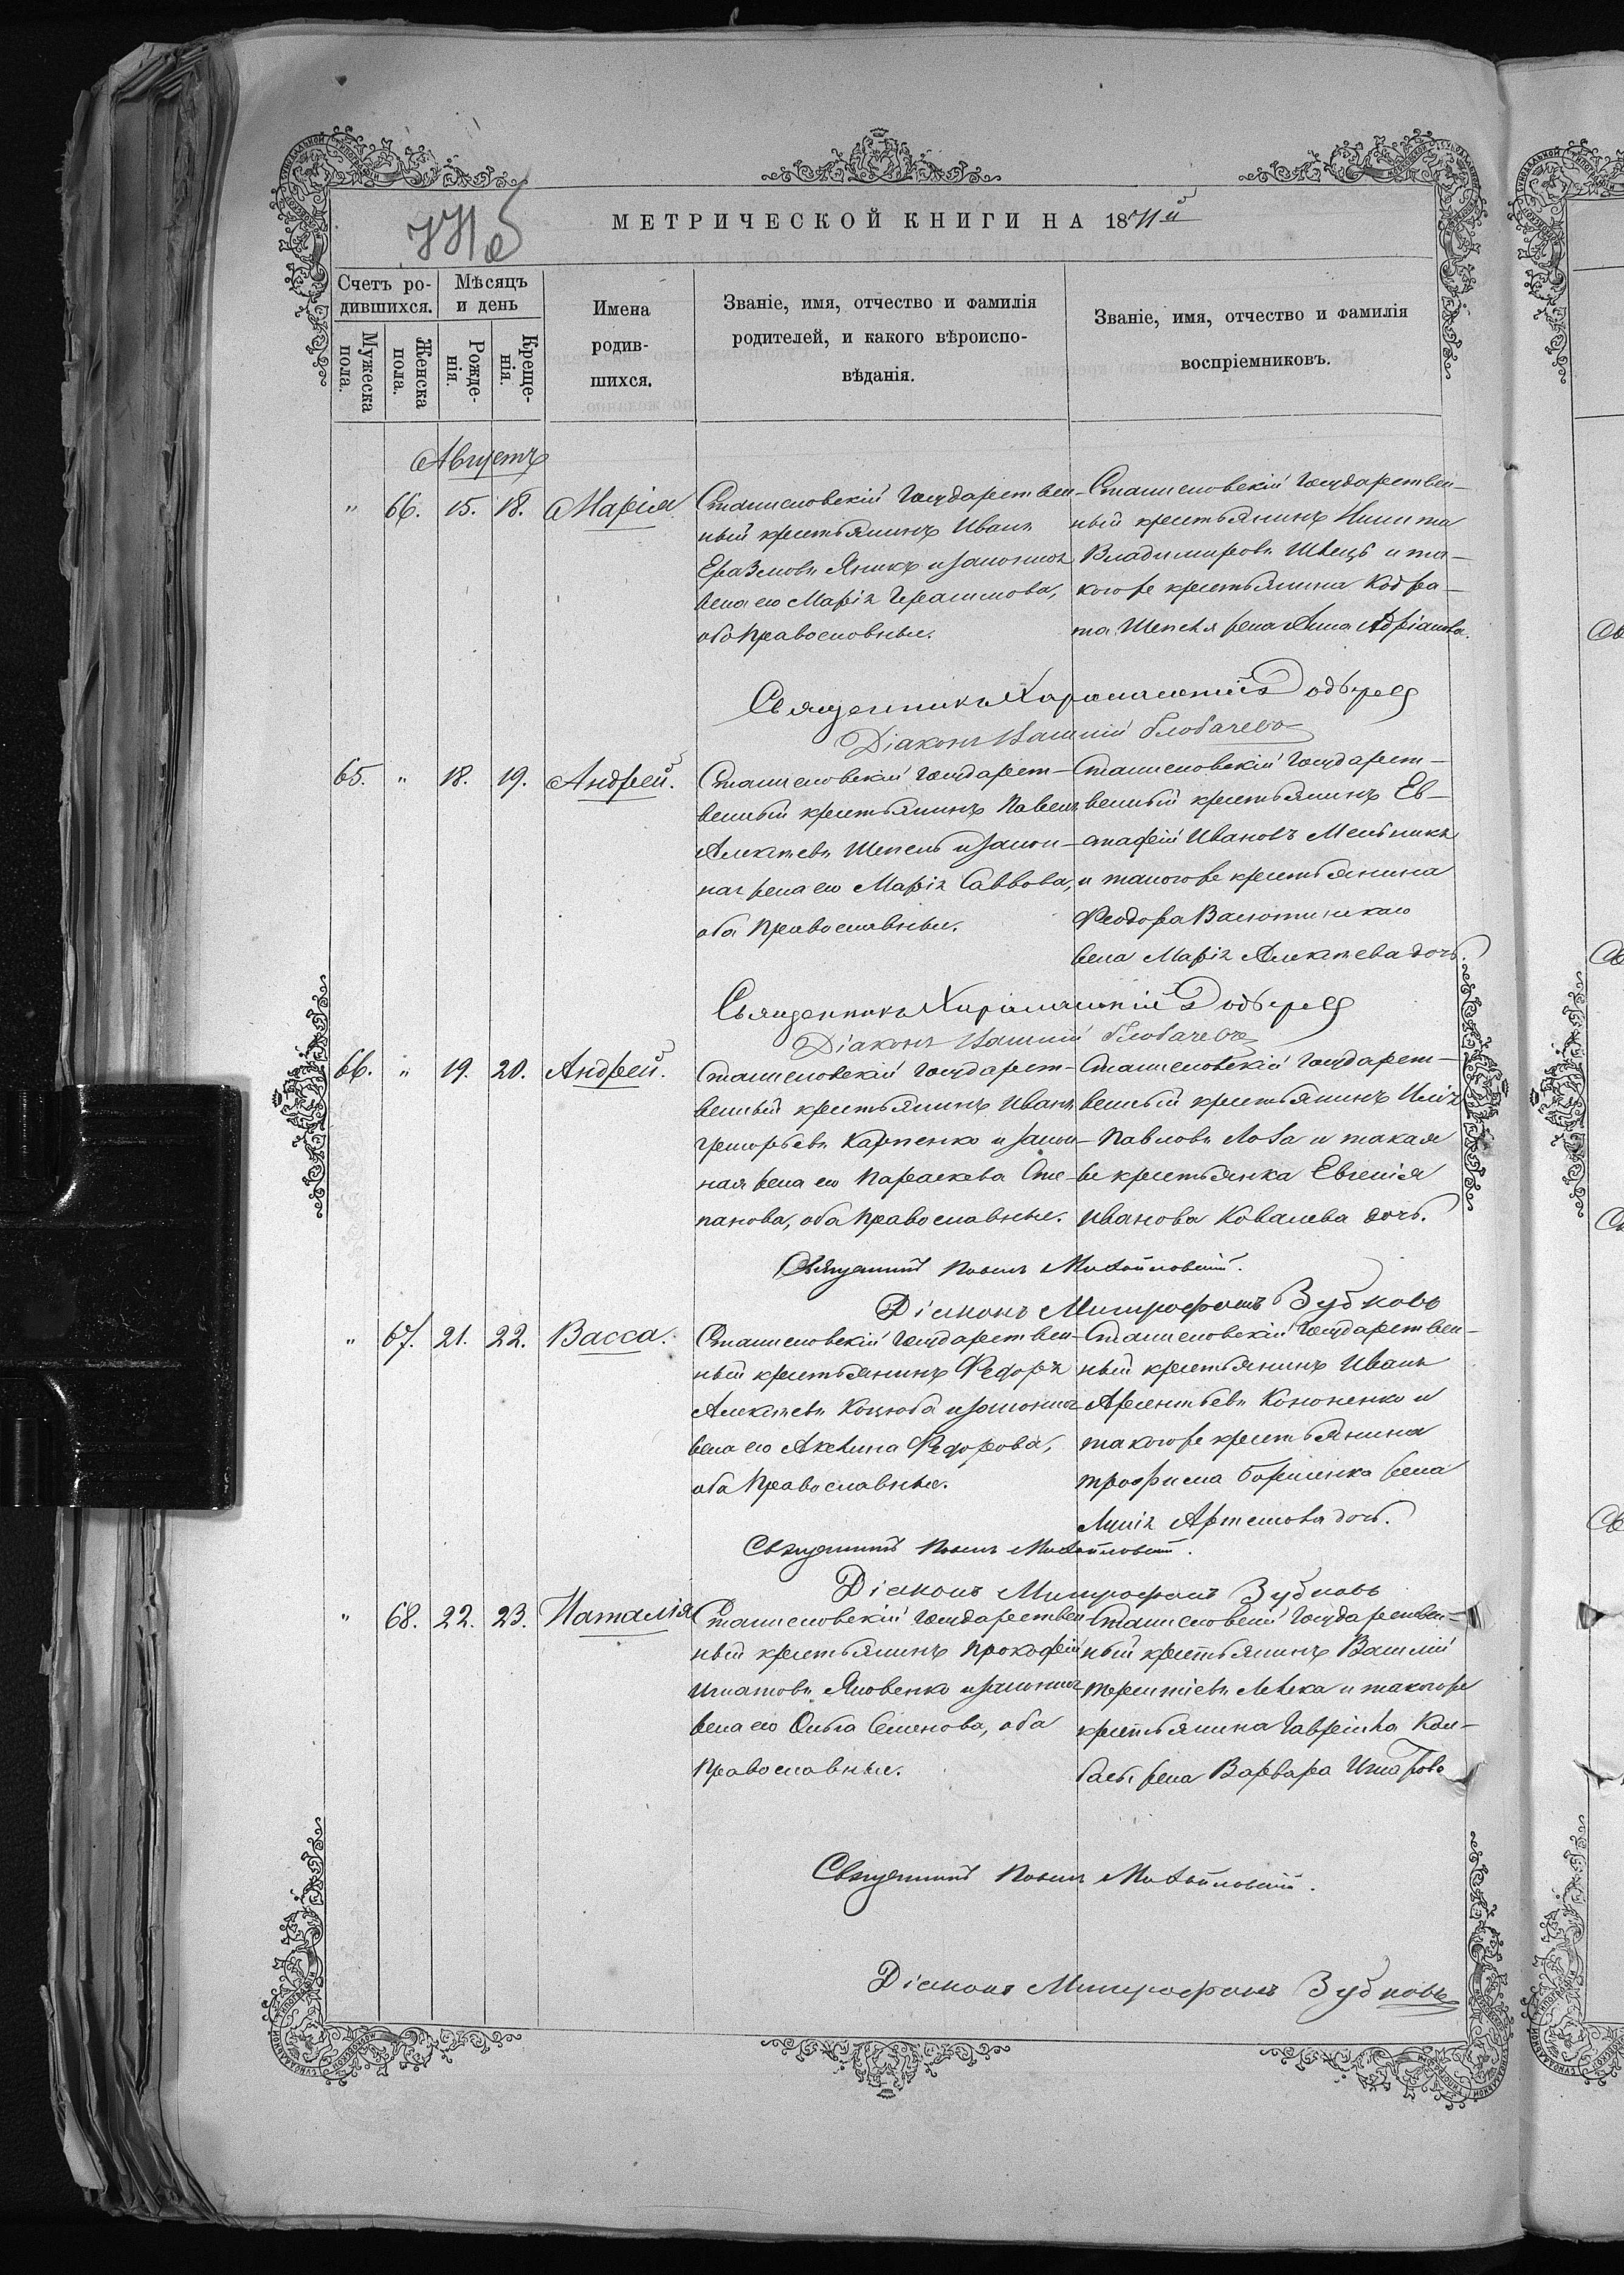 МЕТРИЧЕСКОЙ КНИГИ НА 1871й
Счетъ ро-
дившихся.
Мѣсяцъ
и день
Мужеска
пола.
Женска
пола.
Рожде-
нія.
Креще-
нія.
Имена
родив-
шихся.
Званіе, имя, отчество и фамилія
родителей, и какого вѣроиспо-
вѣданія.
Званіе, имя, отчество и фамилія
воспріемниковъ.
Августъ
" 66. 15. 18. Марія
Станиславскій государствен-
ный крестьянинъ Иванъ
Еразмовъ Яникъ и законная
жена его Марія Герасимова,
оба православные.
Станиславскій государствен-
ный крестьянинъ Никита
Владимировъ Швецъ и та-
когоже крестьянина Кодра-
та Шепеля жена Анна Адріанова.
Священникъ Харалампій
Діаконъ
65. " 18. 19. Андрей.
Станиславскій государст-
венный крестьянинъ Павелъ
Алексѣевъ Шепель и закон-
ная жена его Марія Саввова,
оба православные.
Станиславскій государст-
венный крестьянинъ Ев-
стафій Ивановъ Мельникъ
и такогоже крестьянина
Феодора
жена Марія Алексѣева дочь.
Священникъ Харалампій
Діаконъ
66. " 19. 20. Андрей.
Станиславскій государст-
венный крестьянинъ Иванъ
Григорьевъ Карпенко и закон-
ная жена его Параскева Сте-
панова, оба православные.
Станиславскій государст-
венный крестьянинъ Илія
Павловъ Лоза и такая
же крестьянка Евгенія
Иванова Ковалева дочь.
Священникъ Павелъ Михайловскій.
Діаконъ Митрофанъ Зубковъ
" 67. 21. 22. Васса.
Станиславскій государствен-
ный крестьянинъ Федоръ
Алексѣевъ Коцюба и законная
жена его Акелина Федорова,
оба православные.
Станиславскій государствен-
ный крестьянинъ Иванъ
Арсентьевъ Кононенко и
такогоже крестьянина
Трофима Борисенка жена
Артемова дочь.
Священникъ Павелъ Михайловскій.
Діаконъ Митрофанъ Зубковъ
" 68. 22. 23. Наталія
Станиславскій государствен-
ный крестьянинъ Прокофій
Игнатовъ Яковенко и законная
жена его Ольга Семенова, оба
православные.
Станиславскій государствен-
ный крестьянинъ Василій
Терентіевъ Лелека и такогоже
крестьянина Гавріила Кол-
басы жена Варвара
Священникъ Павелъ Михайловскій.
Діаконъ Митрофанъ Зубковъ